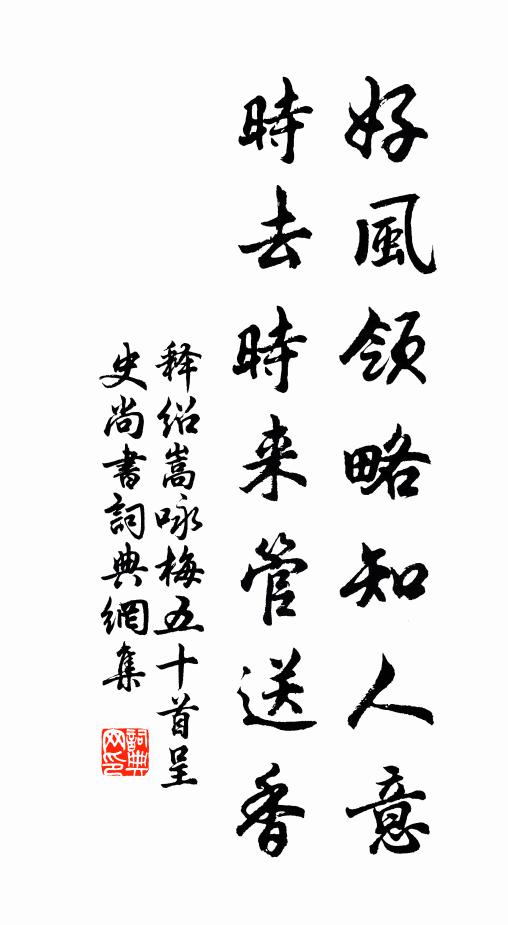 好風領略知人意
時去時来管送香
释绍嵩咏梅五十首呈
史尚書詞典網集
詞典
网印